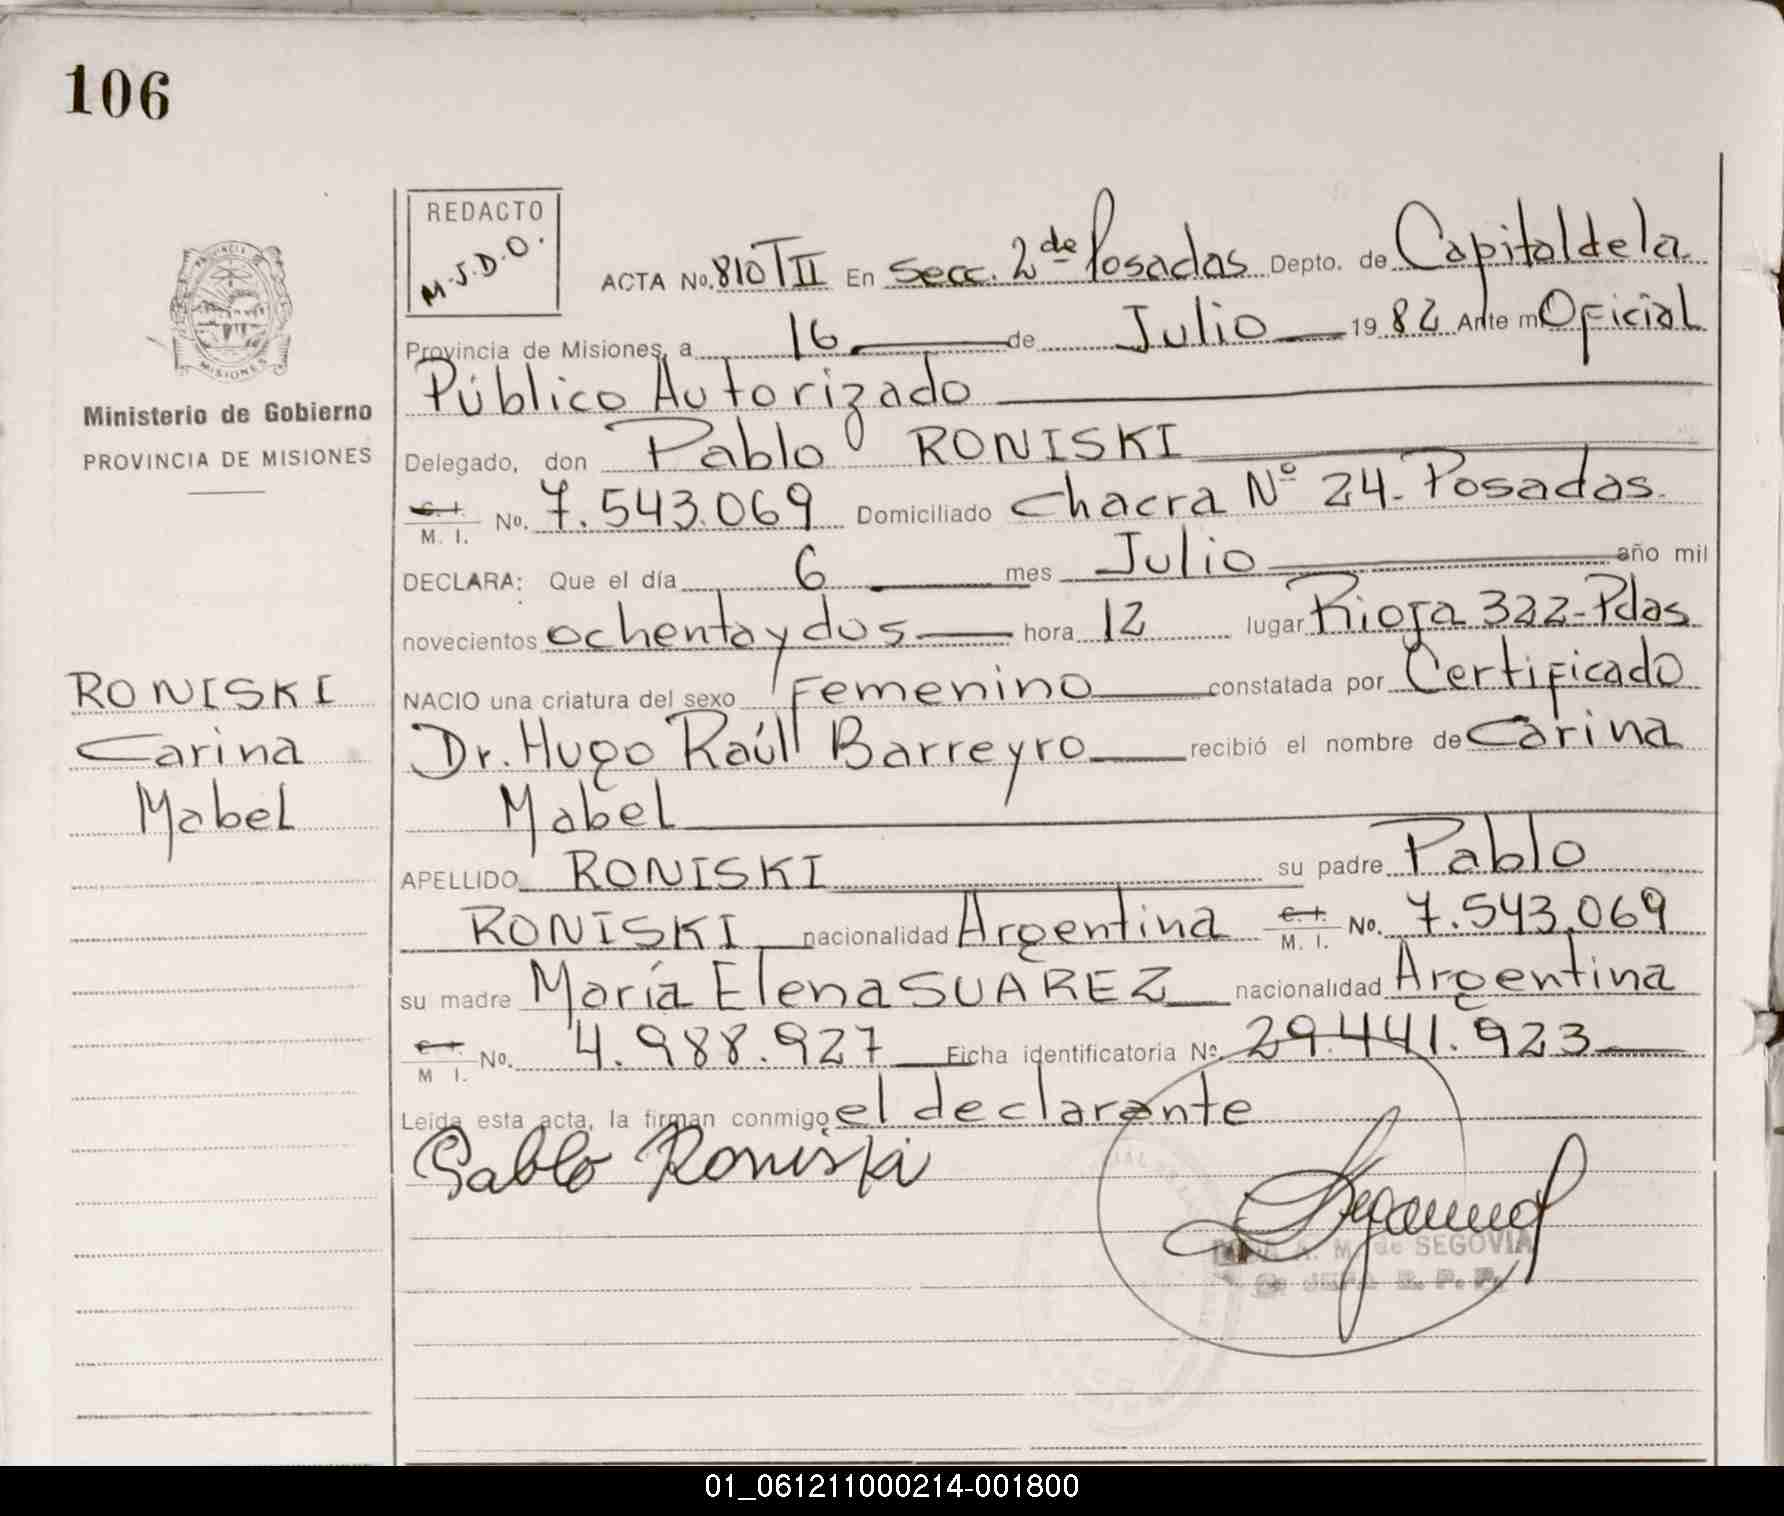 106
REDACTO
M.J.D.O.
ACTA No. 810 TII En Secc. 2da Posadas Depto. de Capital de la
Provincia de Misiones, a 16 de Julio 1982 Ante mi Oficial
Público Autorizado
Delegado, don Pablo RONISKI
C. I. M. I. No. 7.543.069 Domiciliado Chacra Nº 24-Posadas.
DECLARA: Que el día 6 mes Julio año mil
novecientos ochenta y dos hora 12 lugar Rioja 322-Pdas
NACIO una criatura del sexo Femenino constatada por Certificado
Dr. Hugo Raúl Barreyro recibió el nombre de Carina
Mabel
APELLIDO RONISKI su padre Pablo
RONISKI nacionalidad Argentina C. I. M. I. No. 7.543.069
su madre María Elena SUAREZ nacionalidad Argentina
C. I. M I. No. 4.988.927 Ficha identificatoria Nº 29.441.923
Leída esta acta, la firman conmigo el declarante
Pablo Roniski
A. M. de SEGOVIA
JEFA R. P. P.
PROVINCIA DE
MISIONES
Ministerio de Gobierno
PROVINCIA DE MISIONES
RONISKI
Carina
Mabel
01_061211000214-001800